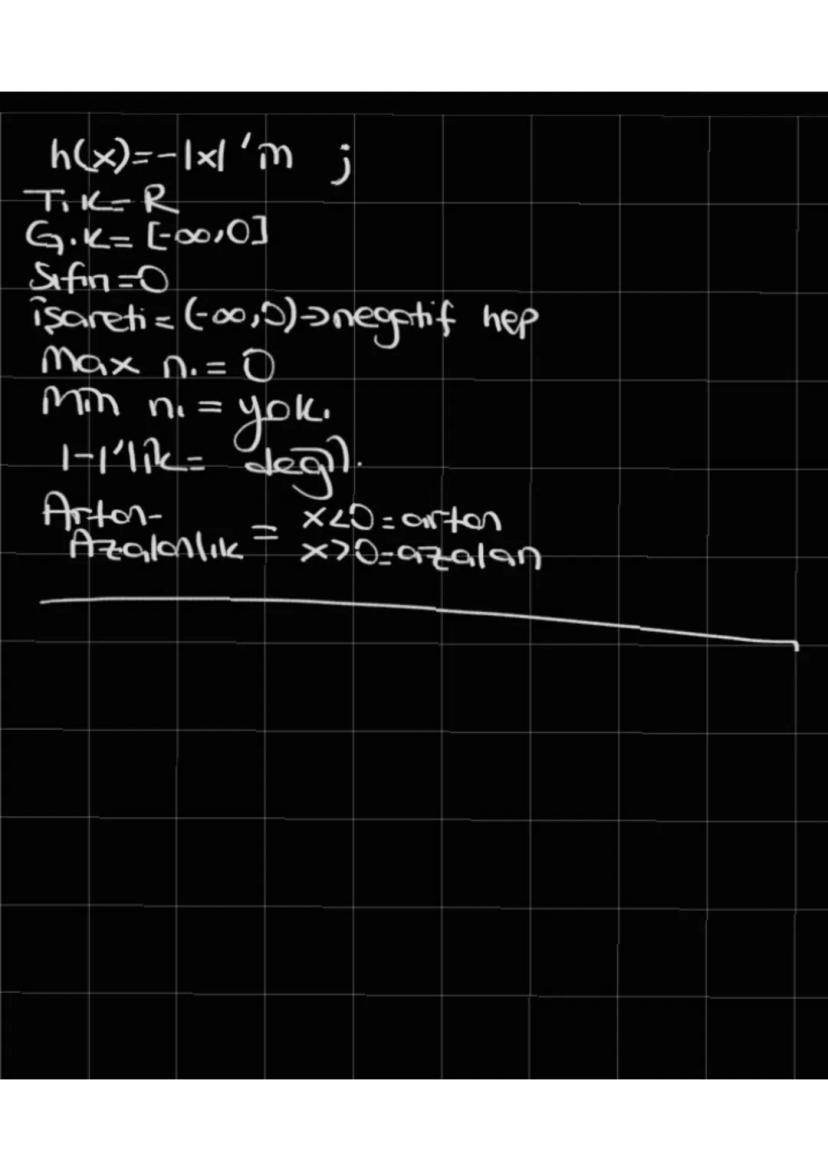 h(x)=-|x| 'in ;
T.K= R
G.K= [-∞,0]
Sıfırı=0
işareti = (-∞,0)→negatif hep
Max n. = 0
Min n. = yok.
1-1'lik= değil.
Artan- = x<0=artan
Azalanlık x>0=azalan